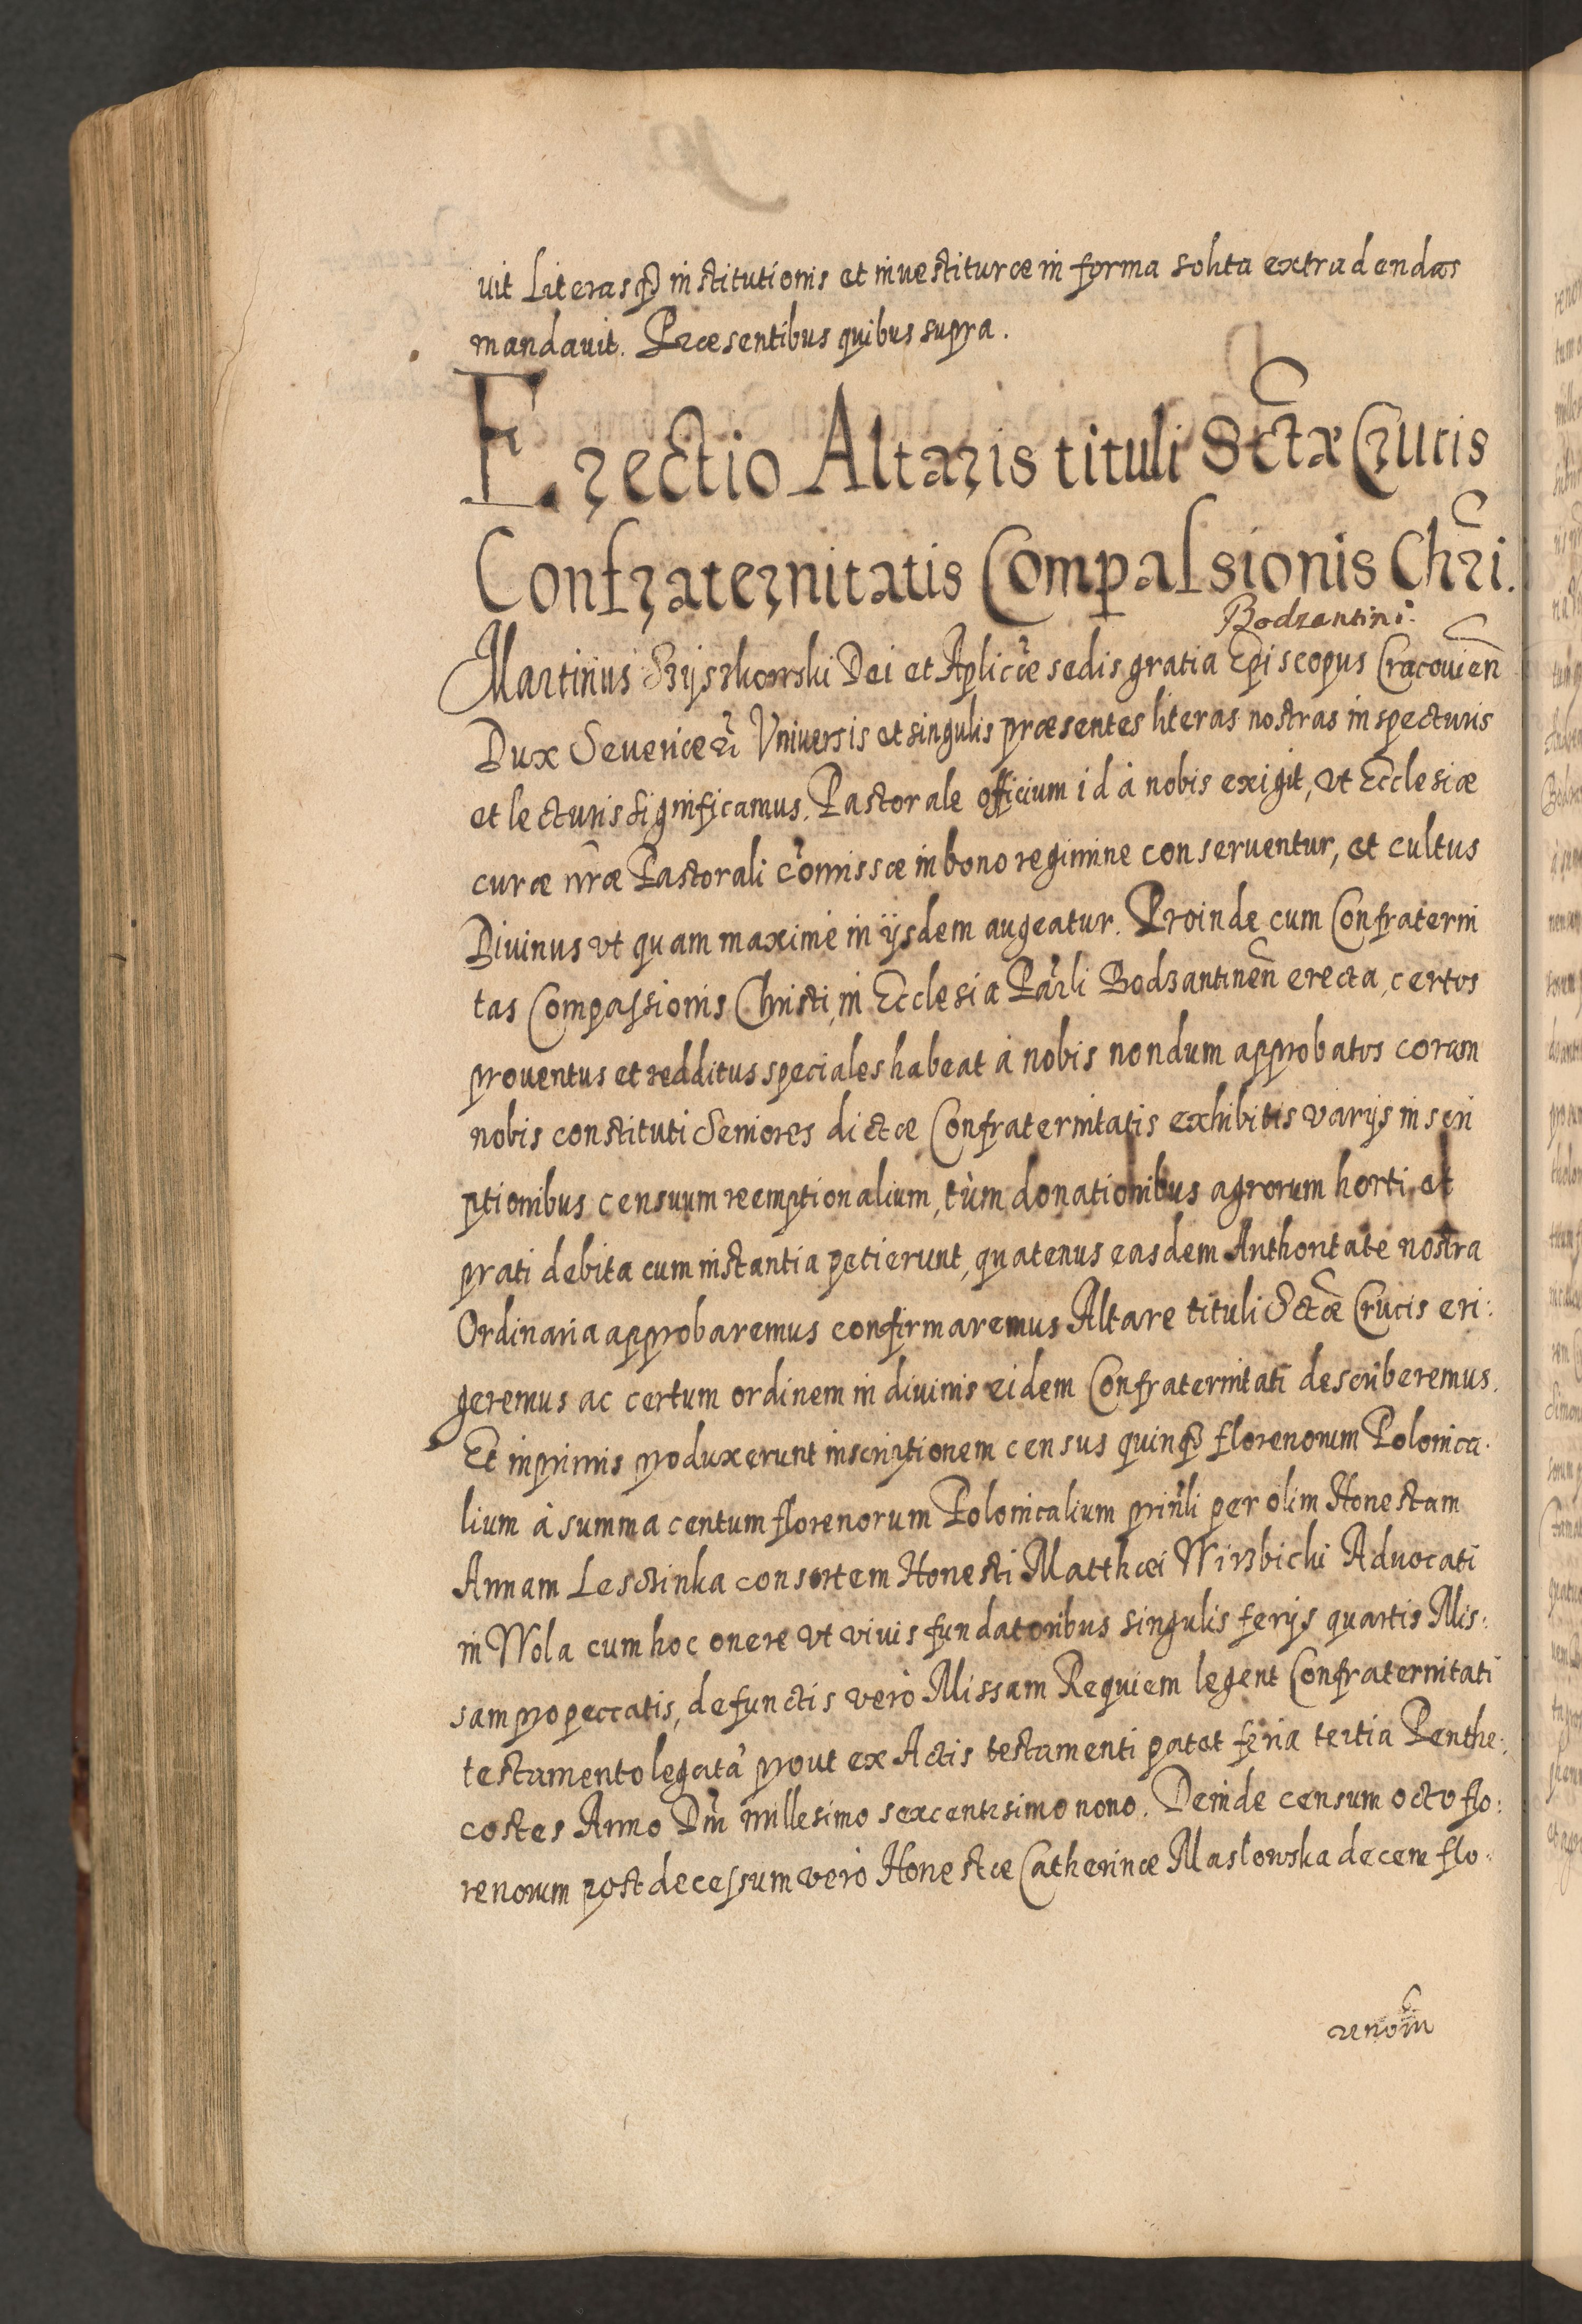 vit Literasq₃ institutionis et investituræ in forma solita extradendas
mandavit. Præsentibus quibus supra.
Erectio Altaris tituli Sctæ Crucis
Confraternitatis Compassionis Chri.
Bodzantini.
Martinus Szyszkowski Dei et Aplicæ sedis gratia Episcopus Cracovien
Dux Severiæ Universis et singulis præsentes literas nostras inspecturis
et lecturis significamus. Pastorale officium id à nobis exigit, vt Ecclesiæ
curæ nræ Pastorali comissæ in bono regimine conserventur, et cultus
Divinus vt quam maximè in ijsdem augeatur. Proinde cum Confraterni
tas Compassionis Christi, in Ecclesia Parli Bodzantinen erecta, certos
proventus et redditus speciales habeat à nobis nondum approbatos coram
nobis constituti Seniores dictæ Confraternitatis exhibitis varijs inscri
ptionibus censuum reemptionalium, tùm donationibus agrorum horti et
prati debita cum instantia petierunt, quatenus easdem Authoritate nostra
Ordinaria approbaremus confirmaremus Altare tituli Sctæ Crucis eri:
geremus ac certum ordinem in divinis eidem Confraternitati describeremus.
Et inprimis produxerunt inscriptionem census quinq₃ florenorum Polonica:
lium à summa centum florenorum Polonicalium prinli per olim Honestam
Annam Lesczinka consortem Honesti Matthæi Wirzbicki Advocati
in Wola cum hoc onere vt vivis fundatoribus singulis ferijs quartis Mis:
sam pro peccatis, defunctis verò Missam Requiem legent Confraternitati
testamento legatà prout ex Actis testamenti patet feria tertia Penthe:
costes Anno Dni millesimo sexcentesimo nono. Deinde censum octo flo:
renorum post decessum verò Honestæ Catherinæ Maslowska decem flo:
renom